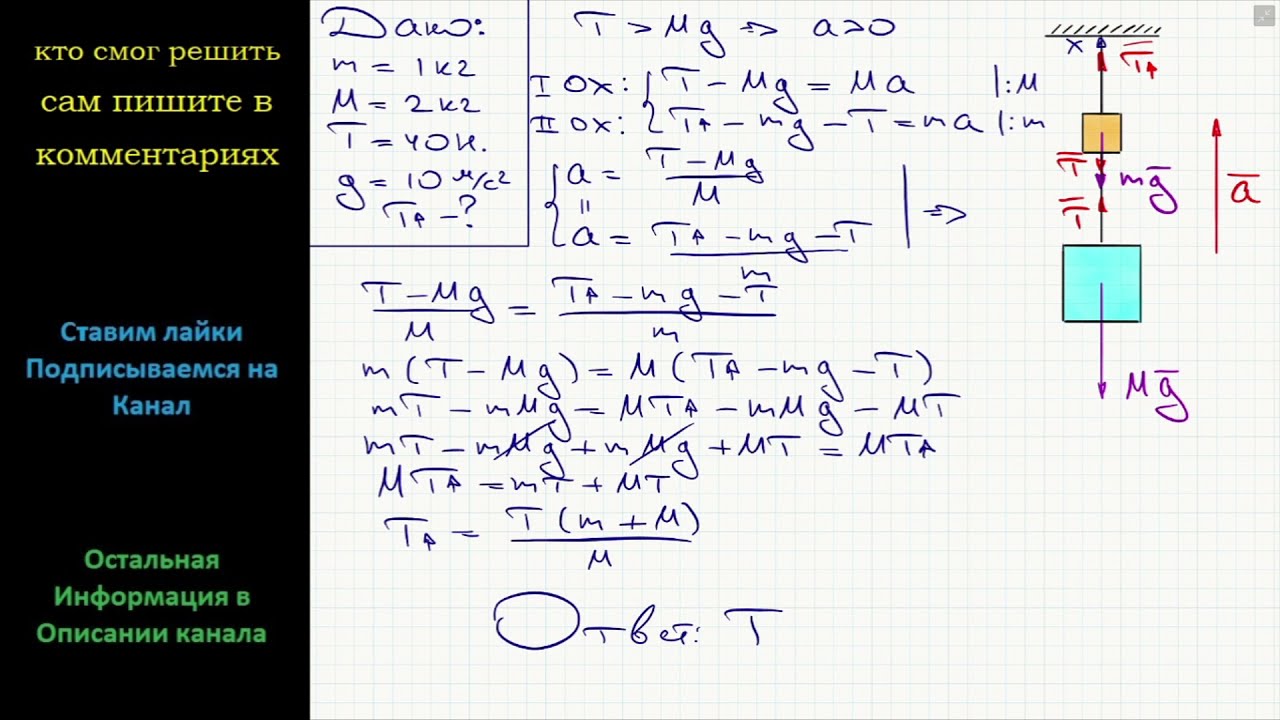 кто смог решить
сам пишите в
комментариях
Ставим лайки
Подписываемся на
Канал
Остальная
Информация в
Описании канала
Дано:
m = 1 кг
M = 2 кг
T = 40 Н.
g = 10 м/с²
TA - ?
T > Mg => a > 0
I OX: { T - Mg = Ma |: M
II OX: { TA - mg - T = ma |: m
a = (T - Mg) / M
=
a = (TA - mg - T) / m | =>
(T - Mg) / M = (TA - mg - T) / m
m (T - Mg) = M (TA - mg - T)
mT - mMg = MTA - mMg - MT
mT - mMg + mMg + MT = MTA
MTA = mT + MT
TA = T (m + M) / M
Ответ: T
x
TA
T
mg
T
a
Mg